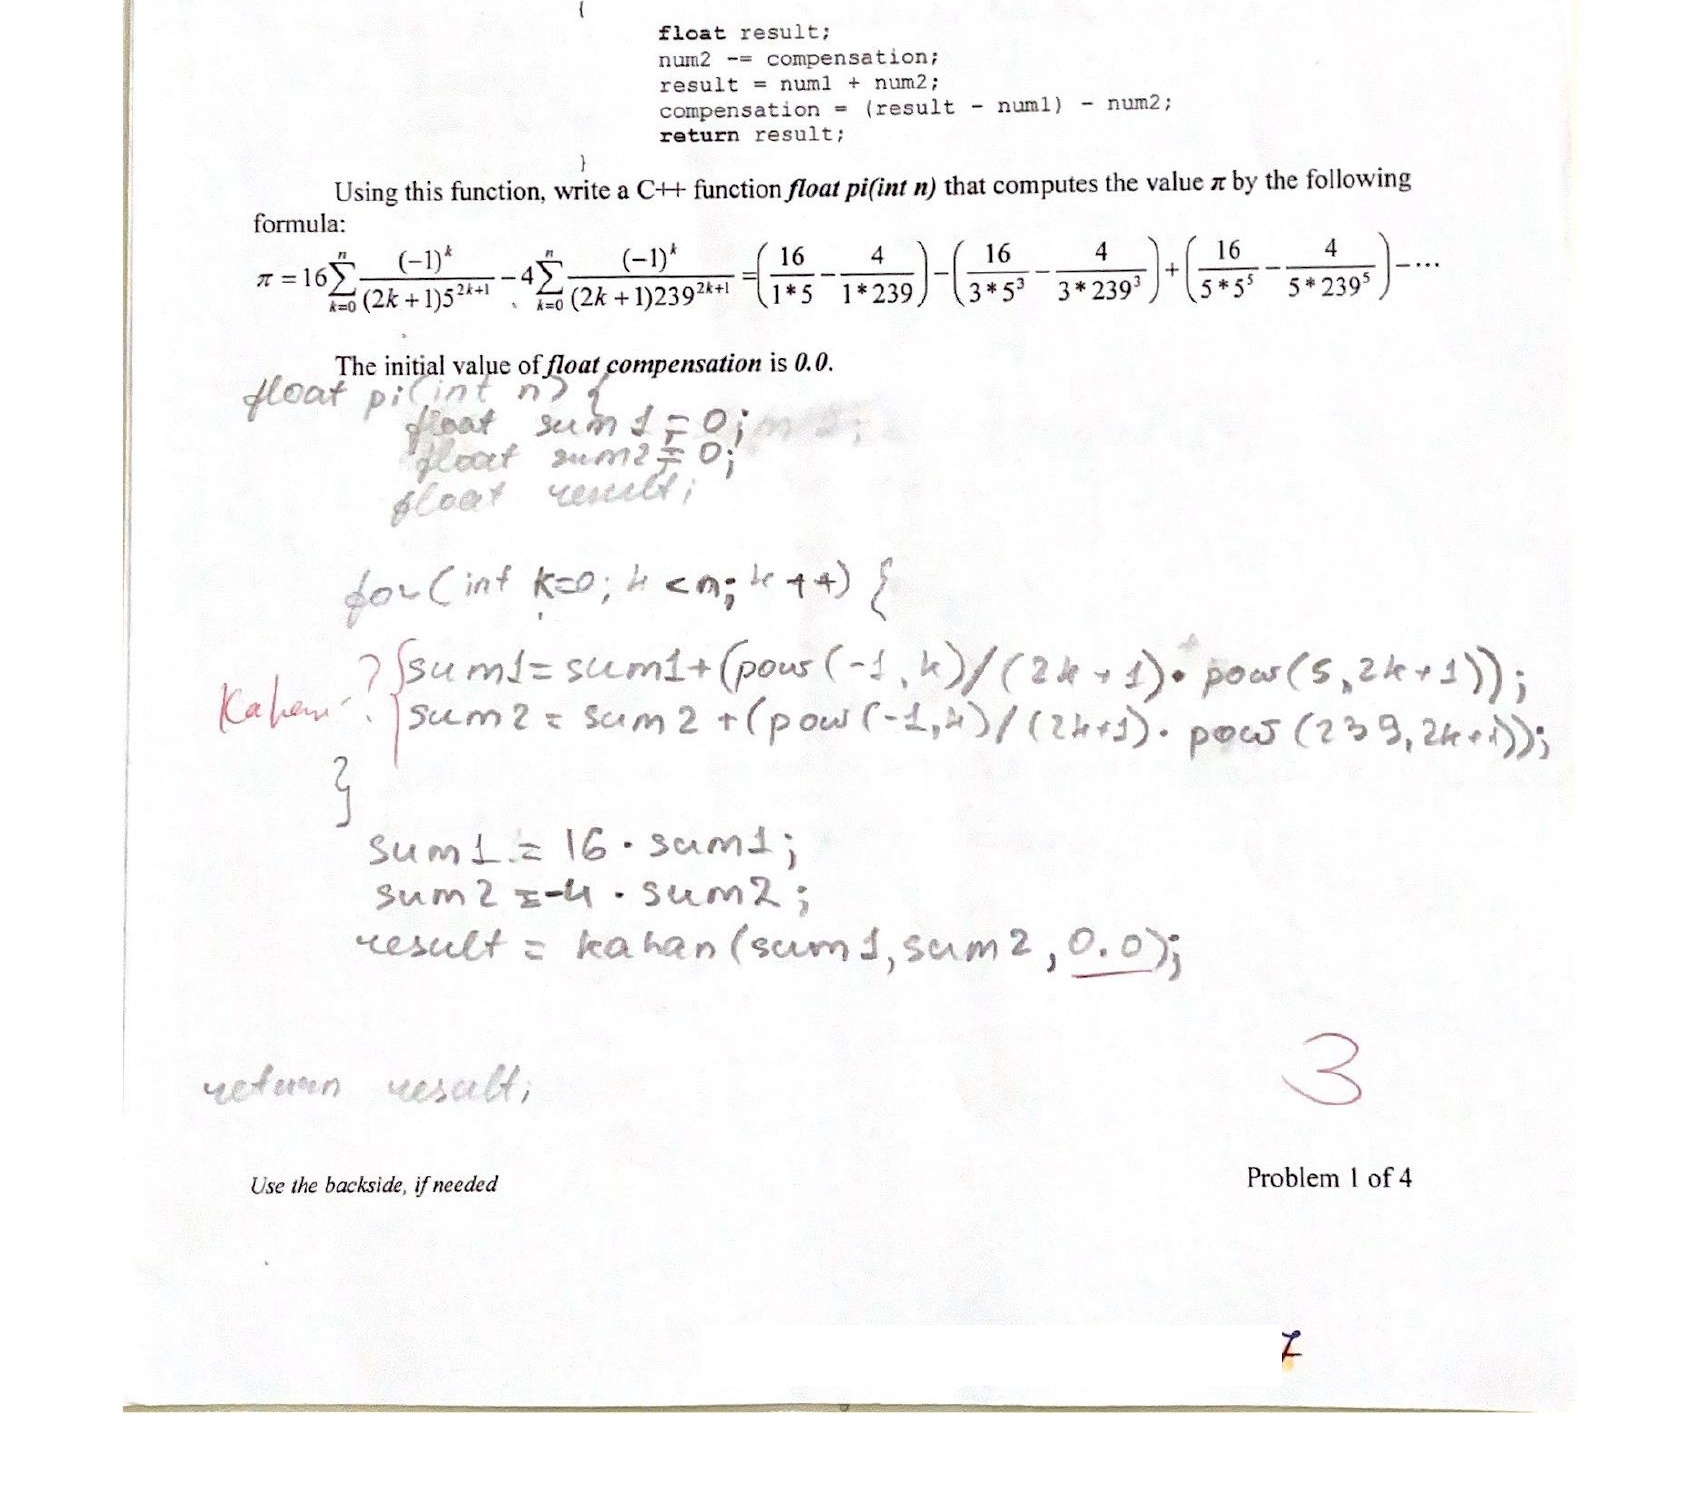 {
float result;
num2 -= compensation;
result = num1 + num2;
compensation = (result - num1) - num2;
return result;
}
Using this function, write a C++ function float pi(int n) that computes the value π by the following
formula:
π = 16 ∑_{k=0}^{n} (-1)^k / (2k+1)5^{2k+1} - 4 ∑_{k=0}^{n} (-1)^k / (2k+1)239^{2k+1} = (16/1*5 - 4/1*239) - (16/3*5^3 - 4/3*239^3) + (16/5*5^5 - 4/5*239^5) - ...
The initial value of float compensation is 0.0.
float pi(int n) {
float sum1 = 0;
float sum2 = 0;
float result;
for(int k=0; k<n; k++) {
? { sum1 = sum1+(pow(-1,k)/(2k+1)· pow(5,2k+1));
Kahan ? sum2 = sum2 +(pow(-1,k)/(2k+1)· pow(239,2k+1));
}
sum1 = 16 · sum1;
sum2 = -4 · sum2;
result = kahan(sum1, sum2, 0.0);
3
return result;
Use the backside, if needed Problem 1 of 4